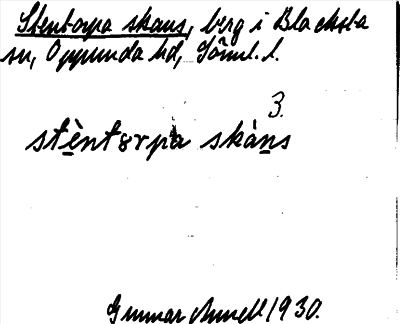 Stentorpa skans, berg i Blacksta
sn, Oppunda hd, Söml. l.
3.
stèntɜrpa skàns
Gunnar Amnell 1930.